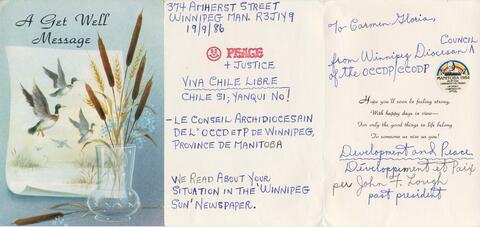 A Get Well
Message
374 AMHERST STREET
WINNIPEG MAN. R3J1Y9
19/9/86
PEACE
+ JUSTICE
VIVA CHILE LIBRE
CHILE SI; YANQUI NO!
- LE CONSEIL ARCHIDIOCESAIN
DE L'OCCD ET P DE WINNIPEG,
PROVINCE DE MANITOBA
WE READ ABOUT YOUR
SITUATION IN THE 'WINNIPEG
SUN' NEWSPAPER.
To Carmen Gloria,
from Winnipeg Diocesan COUNCIL
of the OCCDP/CCODP
MANITOBA 1984
Hope you'll soon be feeling strong,
With happy days in view—
For only the good things in life belong
To someone as nice as you!
Development and Peace
Développement et Paix
per John F. Lough
past president